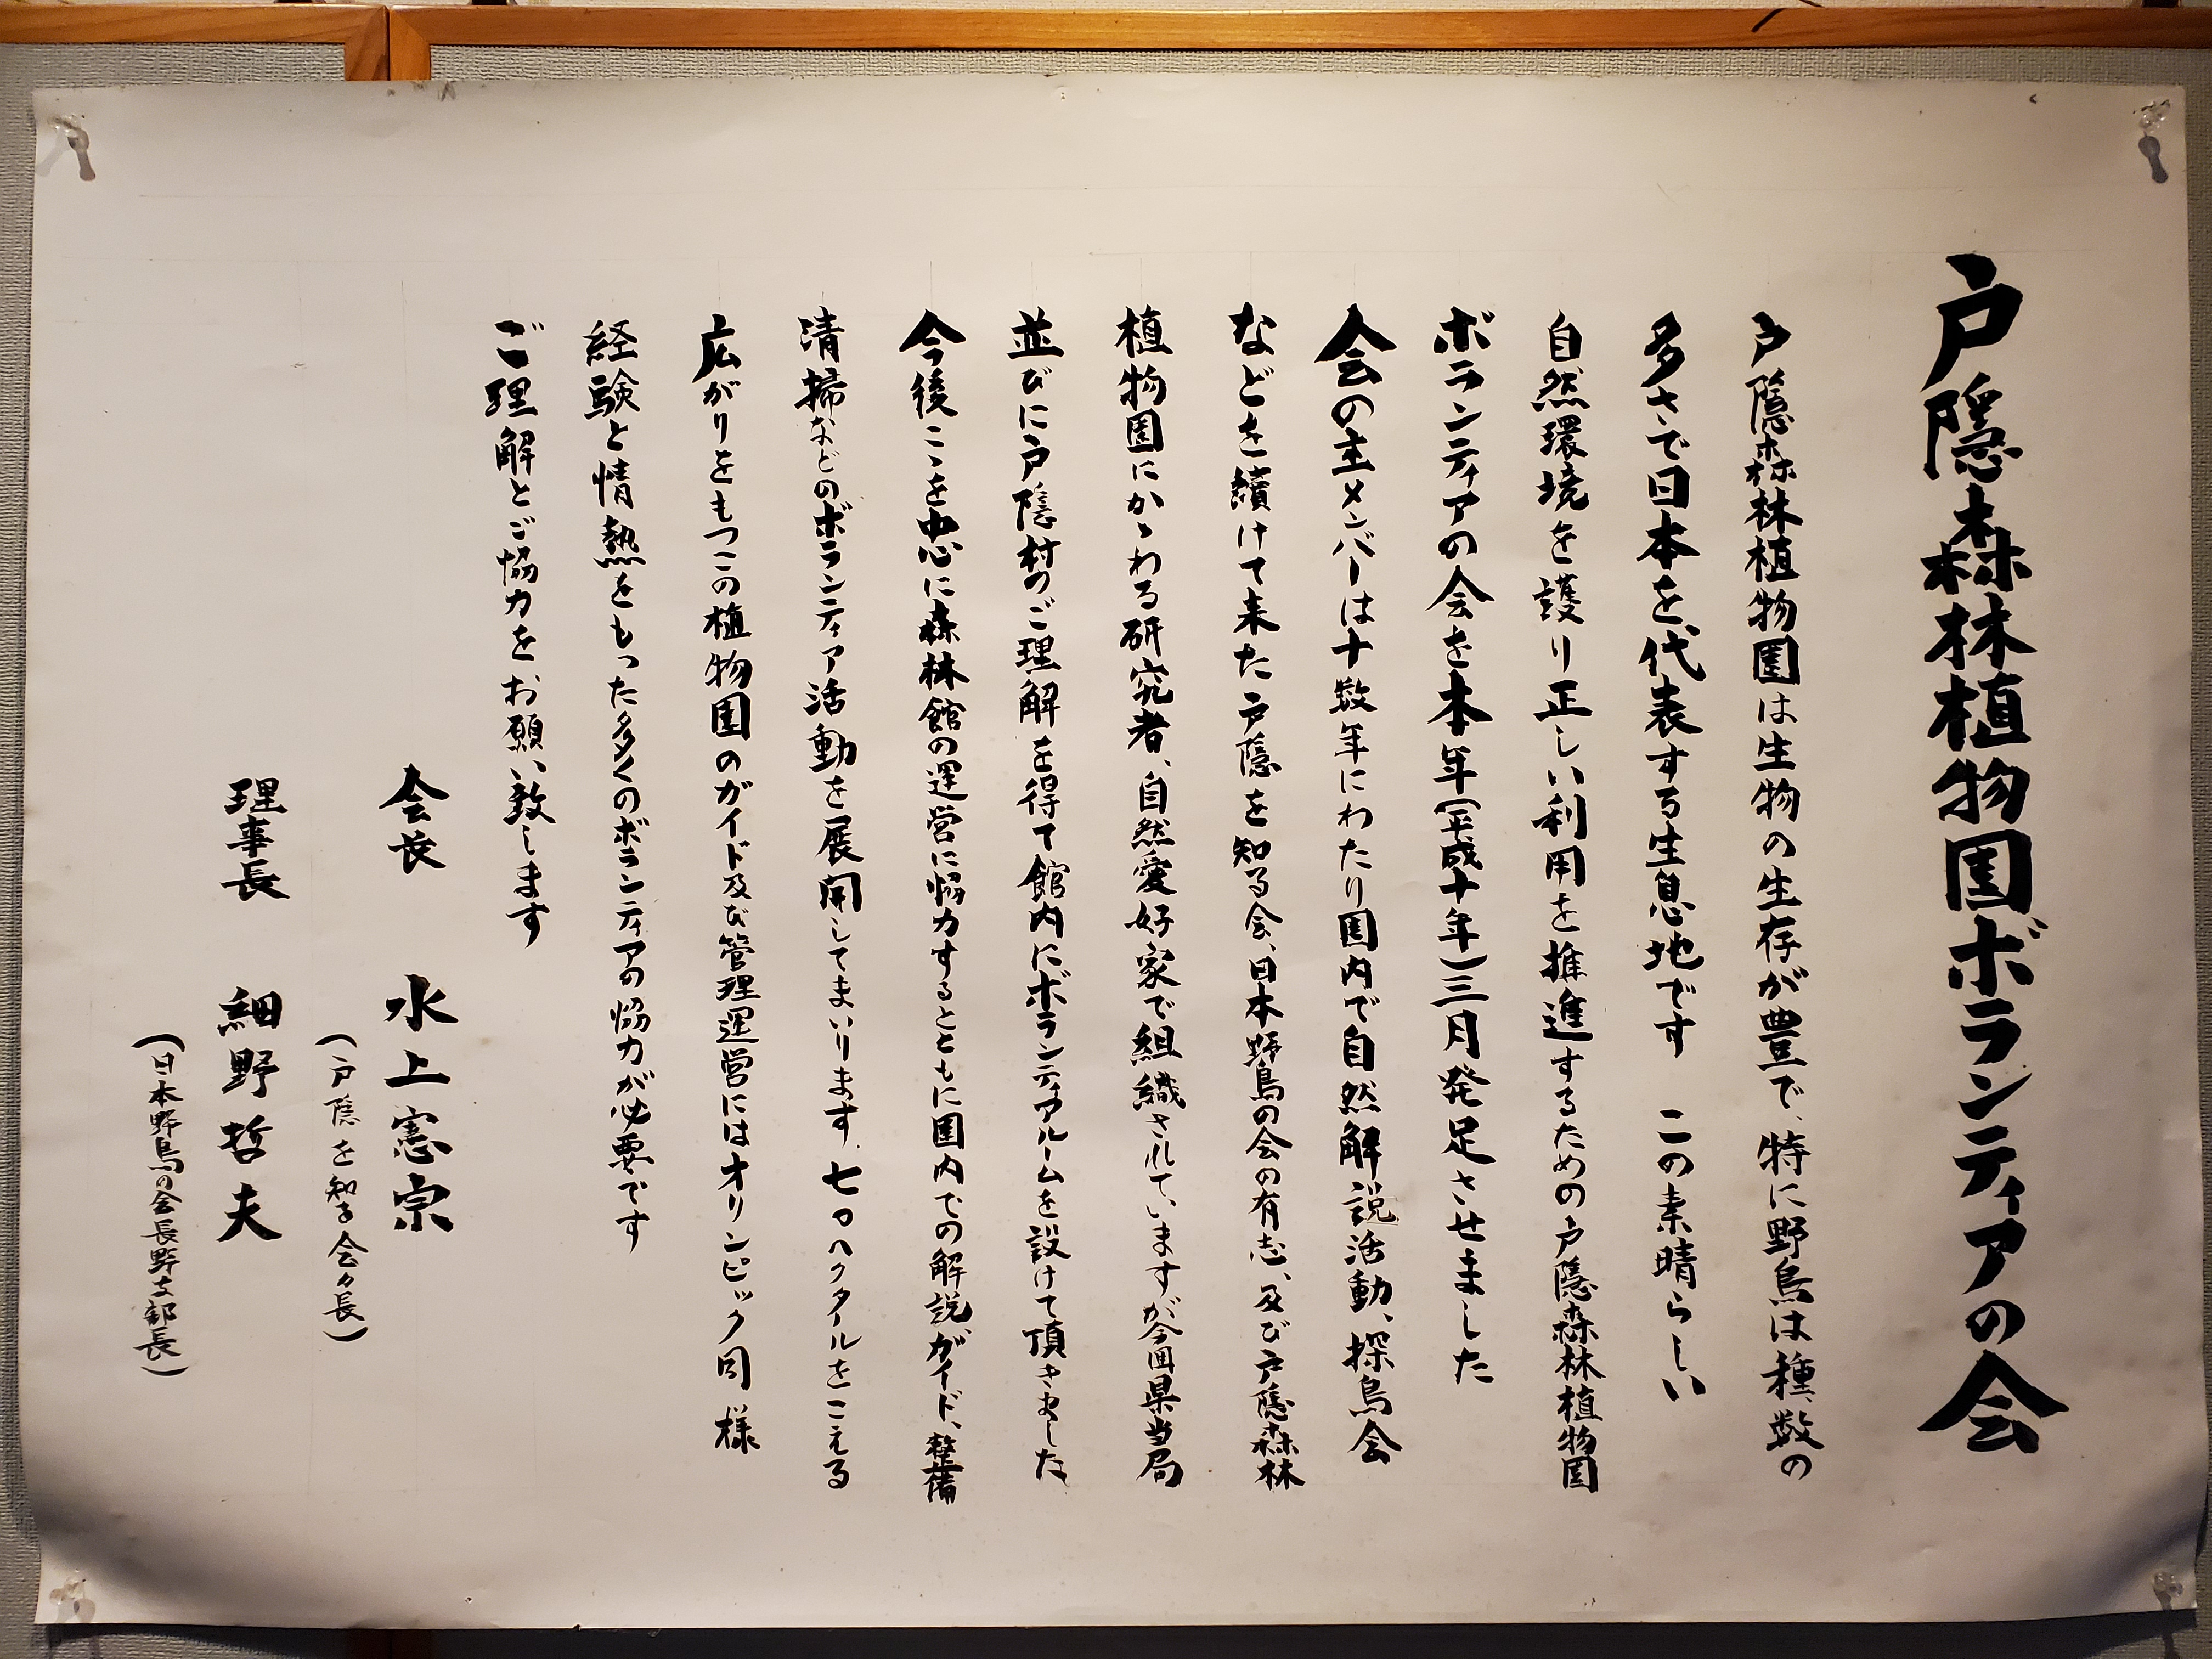 戸隠森林植物園ボランティアの会
戸隠森林植物園は生物の生存が豊で、特に野鳥は種、数の
多さで日本を代表する生息地です　この素晴らしい
自然環境を護り正しい利用を推進するための戸隠森林植物園
ボランティアの会を本年（平成十年）三月発足させました
会の主メンバーは十数年にわたり園内で自然解説活動、探鳥会
などを續けて来た戸隠を知る会、日本野鳥の会の有志、及び戸隠森林
植物園にかゝわる研究者、自然愛好家で組織されていますが今回県当局
並びに戸隠村のご理解を得て館内にボランティアルームを設けて頂きました
今後こゝを中心に森林館の運営に協力するとともに園内での解説、ガイド、整備
清掃などのボランティア活動を展開してまいります、七〇ヘクタールをこえる
広がりをもつこの植物園のガイド及び管理運営にはオリンピック同様
経験と情熱をもった多くのボランティアの協力が必要です
ご理解とご協力をお願い致します
会長　水上憲宗
（戸隠を知る会々長）
理事長　細野哲夫
（日本野鳥の会長野支部長）